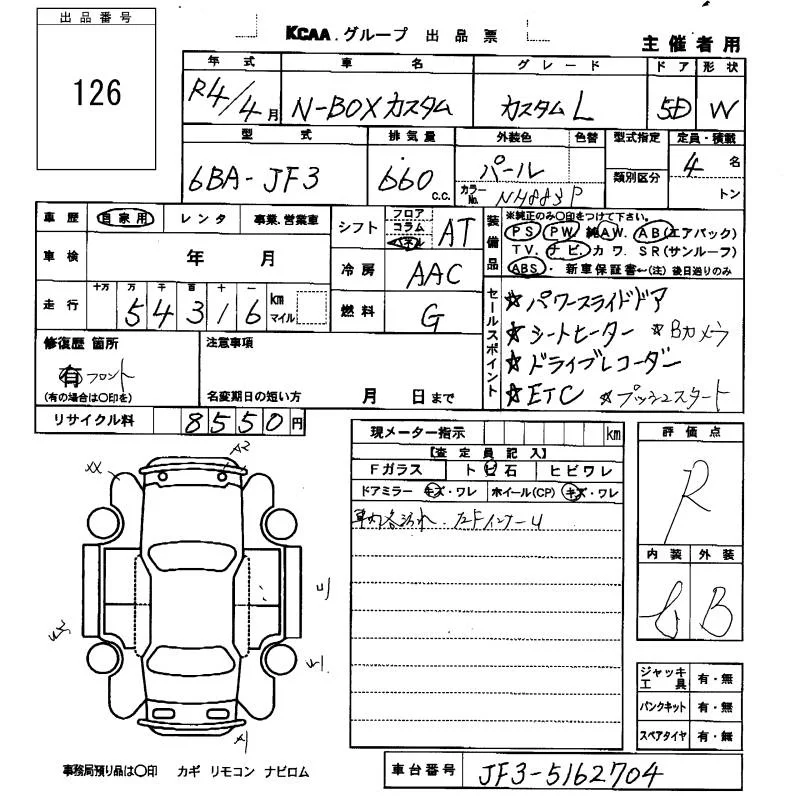 出品番号
126
KCAA.グループ 出品票
主催者用
年式 車名 グレード ドア 形状
R4/4月 N-BOXカスタム カスタムL 5D W
型式 排気量 外装色 色替 型式指定 定員・積載
6BA-JF3 660 c.c. パール カラーNo. NH883P 類別区分 4名 トン
車歴 自家用 レンタ 事業.営業車
シフト フロア コラム パネル AT
装備品 ※純正のみ〇印をつけて下さい。
PS PW 純AW. AB(エアバック)
TV. ナビ. カワ. SR(サンルーフ)
ABS . 新車保証書←(注)後日送りのみ
車検 年 月
冷房 AAC
走行 十万 万 千 百 十 一 km マイル
54316
燃料 G
セールスポイント
☆パワースライドドア
☆シートヒーター ☆Bカメラ
☆ドライブレコーダー
☆ETC ☆プッシュスタート
修復歴 箇所
有 フロント
(有の場合は〇印を)
注意事項
名変期日の短い方 月 日まで
リサイクル料 8550円
現メーター指示 km
【査定員記入】
Fガラス トビ石 ヒビワレ
ドアミラー キズ・ワレ ホイール(CP) キズ・ワレ
車内各汚れ.
評価点
R
内装 外装
B
XX
A2
A1
ジャッキ工具 有・無
パンクキット 有・無
スペアタイヤ 有・無
事務局預り品は〇印 カギ リモコン ナビロム
車台番号 JF3-5162704